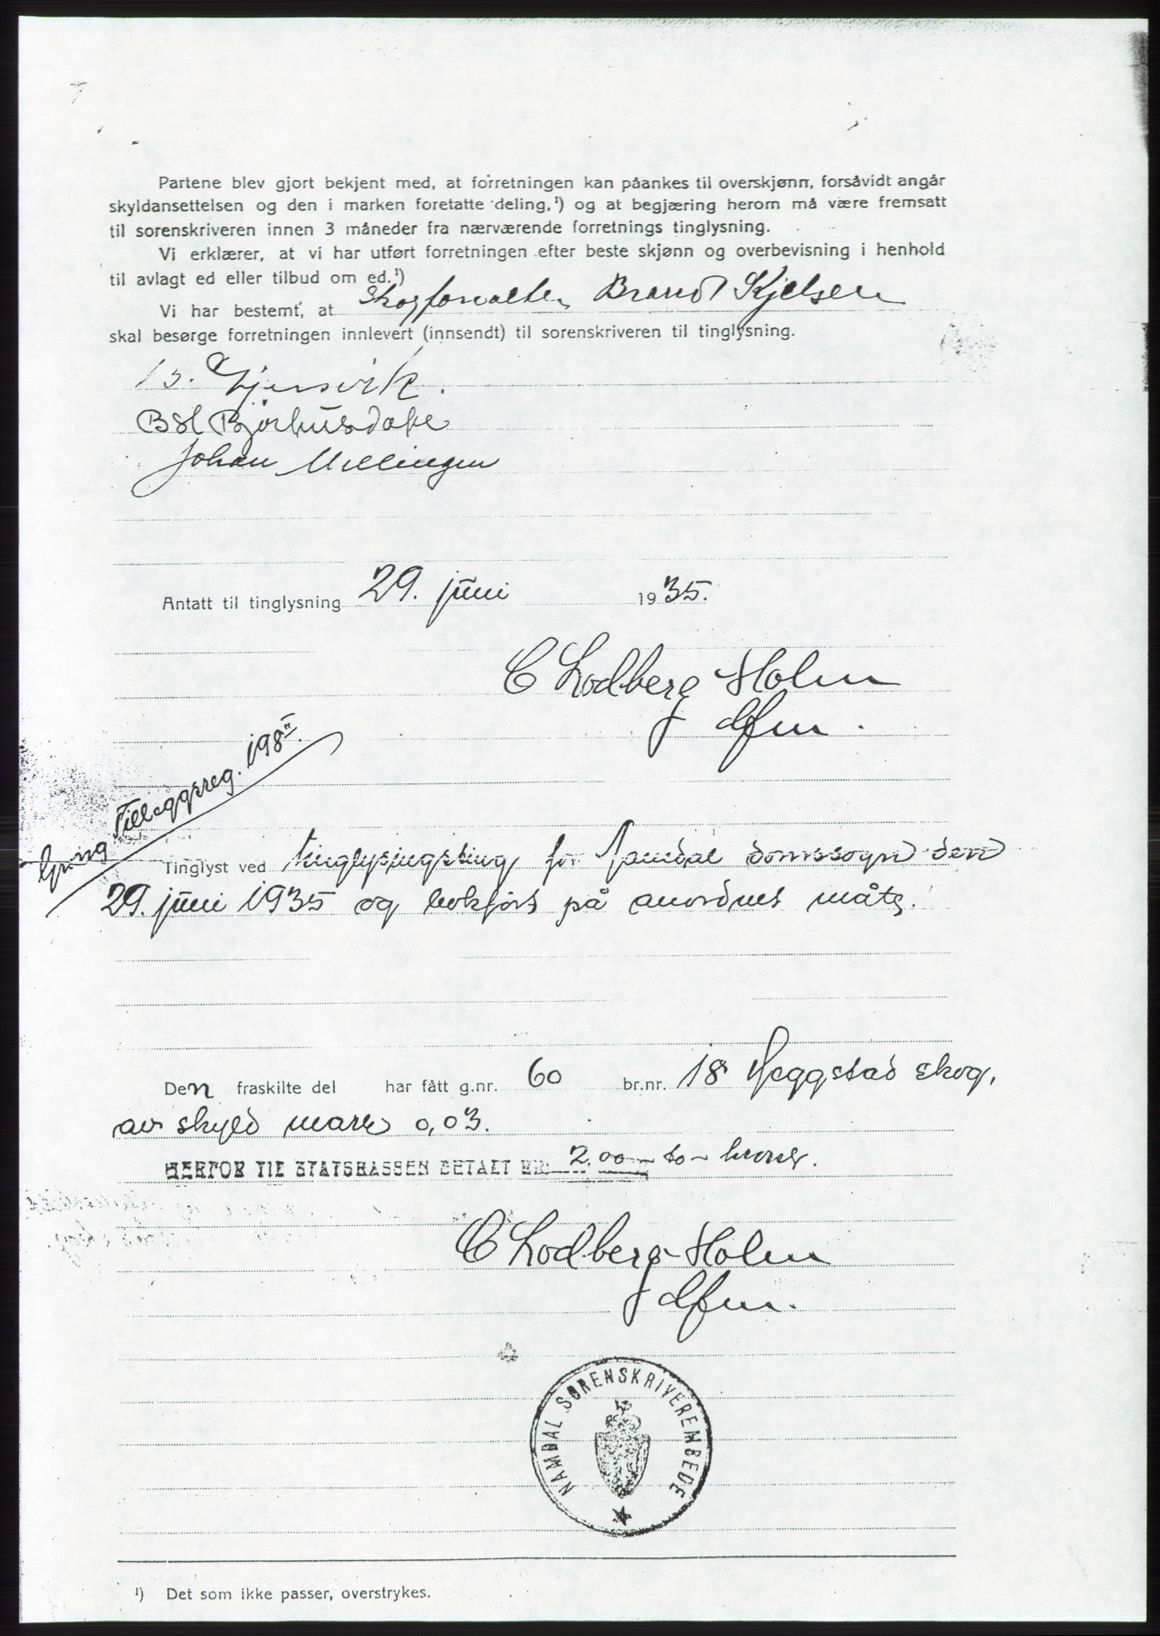 Partene blev gjort bekjent med, at forretningen kan påankes til overskjønn, forsåvidt angår
skyldansettelsen og den i marken foretatte deling,¹) og at begjæring herom må være fremsatt
til sorenskriveren innen 3 måneder fra nærværende forretnings tinglysning.
Vi erklærer, at vi har utført forretningen efter beste skjønn og overbevisning i henhold
til avlagt ed eller tilbud om ed.¹)
Vi har bestemt, at Skogforvalter Brandt Kjelsen
skal besørge forretningen innlevert (innsendt) til sorenskriveren til tinglysning.
Gjersvik.
Bjørhusdahl
Johan Mellingen
Antatt til tinglysning 29. juni 1935.
C Lodberg-Holm
dfm.
Tilleggsreg. 198
Tinglyst ved tinglysingsting for Namdal domssogn den
29. juni 1935 og bokført på anordnet måte.
Den fraskilte del har fått g.nr. 60 br.nr. 18 Heggstad skog,
av skyld mark 0,03.
HERFOR TIL STATSKASSEN BETALT KR. 2.00 - to - kroner.
C Lodberg-Holm
dfm.
NAMDAL SORENSKRIVEREMBEDE
¹) Det som ikke passer, overstrykes.